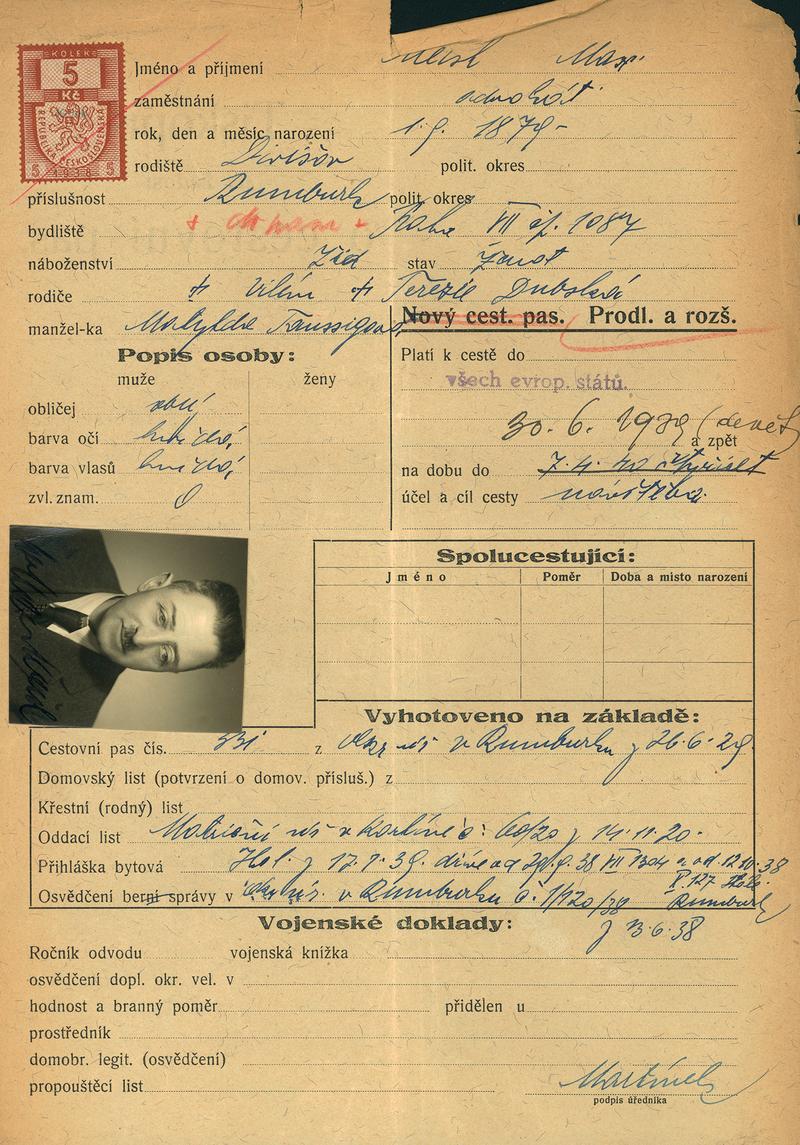 KOLEK
5
Kč
REPUBLIKA ČESKOSLOVENSKÁ
5 1938 5
Jméno a příjmení Meisl Max
zaměstnání advokát
rok, den a měsíc narození 1. 9. 1879 -
rodiště Divišov polit. okres
příslušnost Rumburk polit. okres
bydliště Praha VII čp. 1087
náboženství žid stav ženat
rodiče † Vilém † Terezie Dubská
manžel-ka Matylda Taussigová
Nový cest. pas. Prodl. a rozš.
Popis osoby:
muže ženy
Platí k cestě do
všech evrop. států.
obličej obl.
barva očí hnědá
barva vlasů hnědá
zvl. znam. 0
30. 6. 1939 (devět
a zpět
na dobu do 7. 4. 40 čtyřicet
účel a cíl cesty návštěva
Spolucestující:
Jméno Poměr Doba a místo narození
Vyhotoveno na základě:
Cestovní pas čís. 331 z Okr. úř. v Rumburku z 26. 6. 29
Domovský list (potvrzení o domov. přísluš.) z
Křestní (rodný) list
Oddací list Matriční úř. v č: 60/20 z 14. 11. 20.
Přihláška bytová Hol. z 17. 1. 39. dříve od 29. 9. 38 VII 1304 a od 12. 10. 38
Osvědčení berní správy v Okr. úř. v Rumburku č. 1/120/38 Rumburk
z 13. 6. 38
Vojenské doklady:
Ročník odvodu vojenská knížka
osvědčení dopl. okr. vel. v
hodnost a branný poměr přidělen u
prostředník
domobr. legit. (osvědčení)
propouštěcí list
Martínek
podpis úředníka